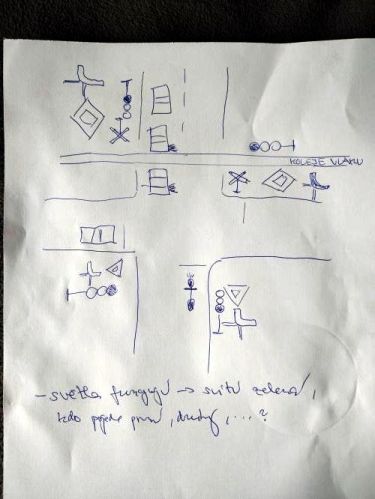 KOLEJE VLAKU
- světla fungují → svítí zelená,
kdo pojede první, druhý, ...?